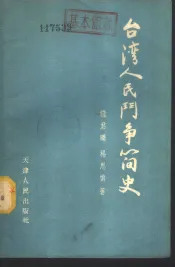 基本館藏
台湾人民鬥争简史
著
天津人民出版社